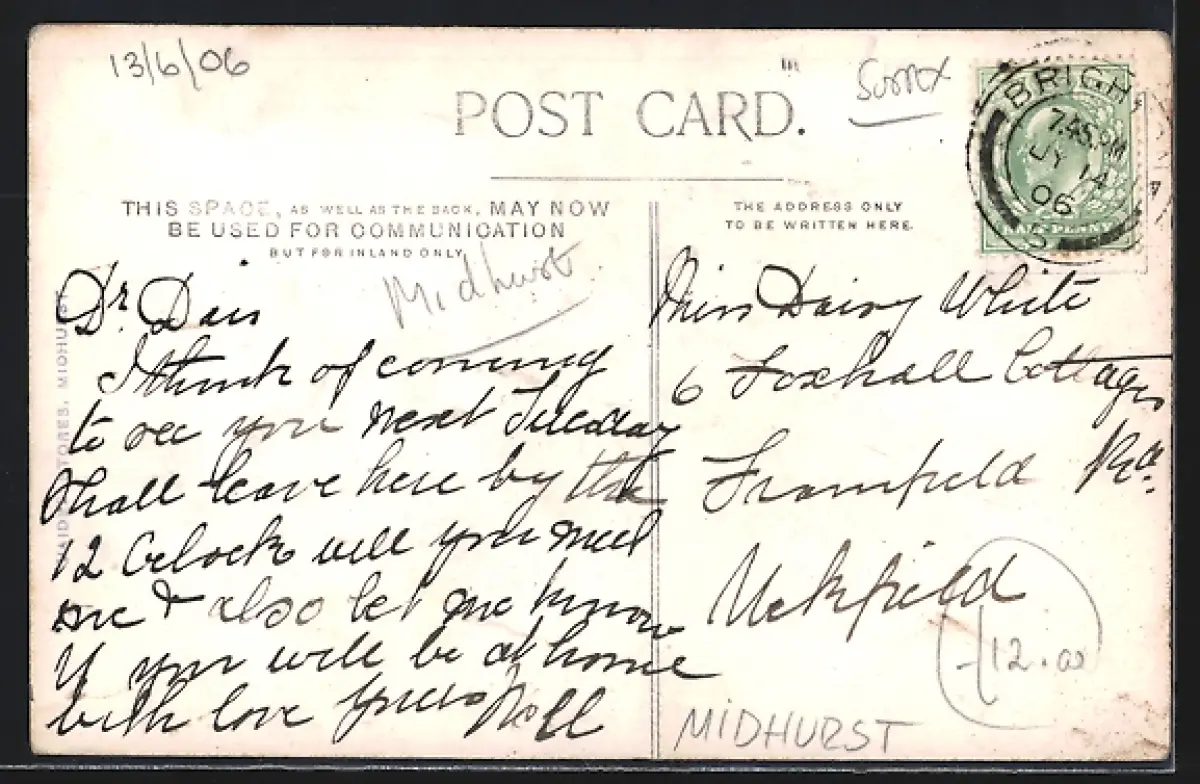 13/6/06
POST CARD.
BRIGH
7.45 PM
JY 14
06
HALF PENNY
THIS SPACE, AS WELL AS THE BACK, MAY NOW
BE USED FOR COMMUNICATION
BUT FOR INLAND ONLY
THE ADDRESS ONLY
TO BE WRITTEN HERE.
Midhurst
STORES, MIDHURST
Dr. Dais
I think of coming
to see you next Tuesday
Shall leave here by the
12 Oclock will you meet
me & also let me know
if you will be at home
with love yours Nell
Miss Daisy White
6 Foxhall Cottages
Framfield Rd.
Uckfield
12.00
MIDHURST